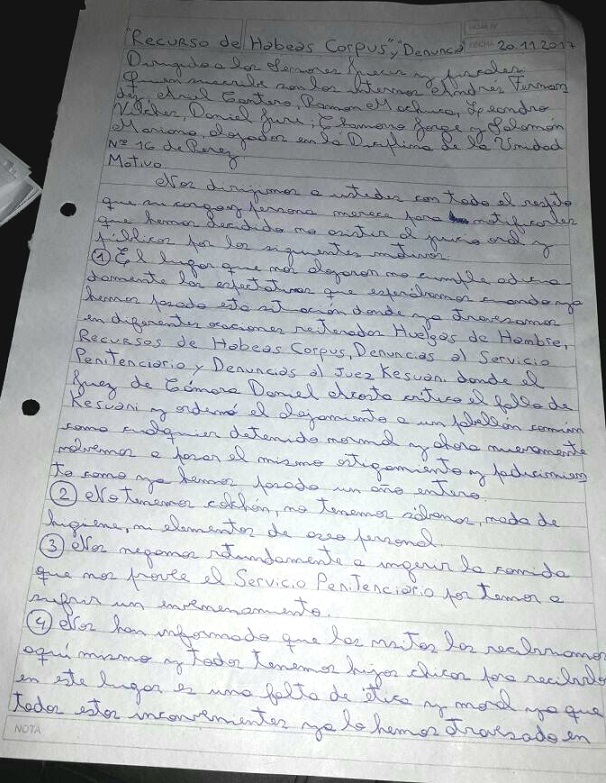 "Recurso de Habeas Corpus" y "Denuncia" FECHA 20.11.2017
Dirigido a los Señores Jueces y fiscales
Quien suscribe son los internos Andres Fernan
dez, Ariel Cantero, Ramon Machuca, Leandro
Vilches, Daniel Jure; Chamorro Jorge y Salomón
Mariano, alojados en la Disiplina de la Unidad
Nº 16 de Perez
Motivo.
Nos dirigimos a ustedes con todo el respeto
que su cargo y persona merece para notificarles
que hemos decidido no asistir al juicio oral y
público por los siguientes motivos
① El lugar que nos alojaron no cumple adecua
damente las espectativas que esperabamos cuando ya
hemos pasado esta situación donde ya atravesamos
en diferentes ocaciones reiteradas Huelgas de Hambre,
Recursos de Habeas Corpus, Denuncias al Servicio
Penitenciario y Denuncias al Juez Kesuani donde el
Juez de Cámara Daniel Acosta critico el fallo de
Kesuani y ordenó el alojamiento a un pabellon comun
como cualquier detenido normal y ahora nuevamente
volvemos a pasar el mismo ostigamiento y padecimien
to como ya hemos pasado un año entero.
② No tenemos colchón, no tenemos sábanas, nada de
higiene, ni elementos de aseo personal.
③ Nos negamos rotundamente a ingerir la comida
que nos provee el Servicio Penitenciario por temor a
sufrir un envenenamiento.
④ Nos han informado que las visitas las recibiriamos
aquí mismo y todos tenemos hijos chicos para recibirlos
en este lugar es una falta de ética y moral ya que
todos estos inconvenientes ya lo hemos atravesado en
NOTA